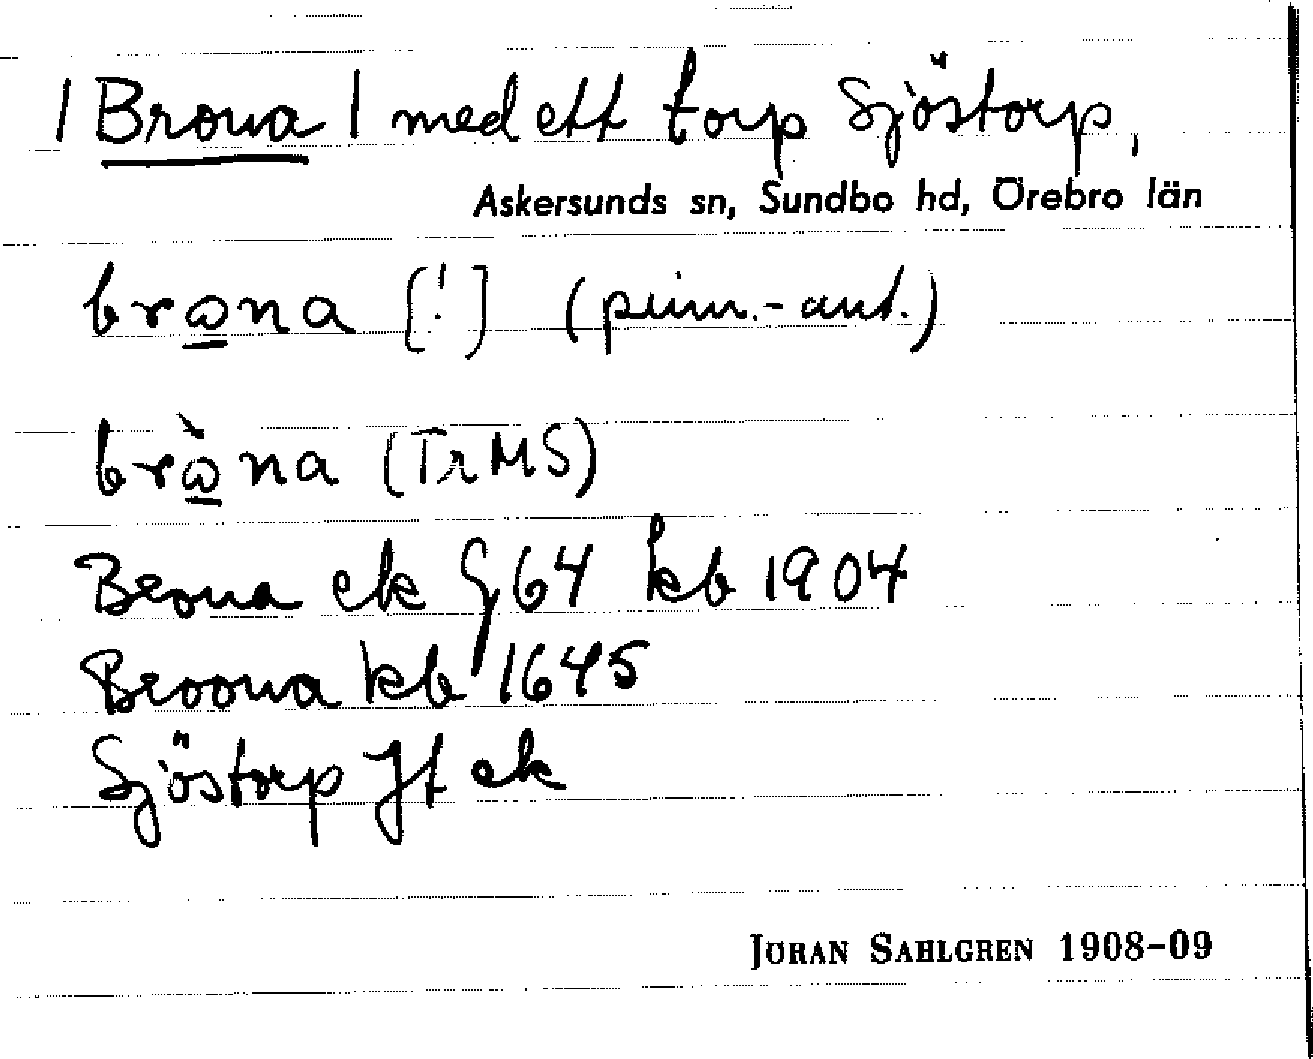 | Brona | med ett torp Sjöstorp,
Askersunds sn, Sundbo hd, Örebro län
brω̲na [!] (prim.-ant.)
brὼ̲na (TrMS)
Brona ek G64 kb 1904
Broona kb 1645
Sjöstorp Jt ek
JÖRAN SAHLGREN 1908-09